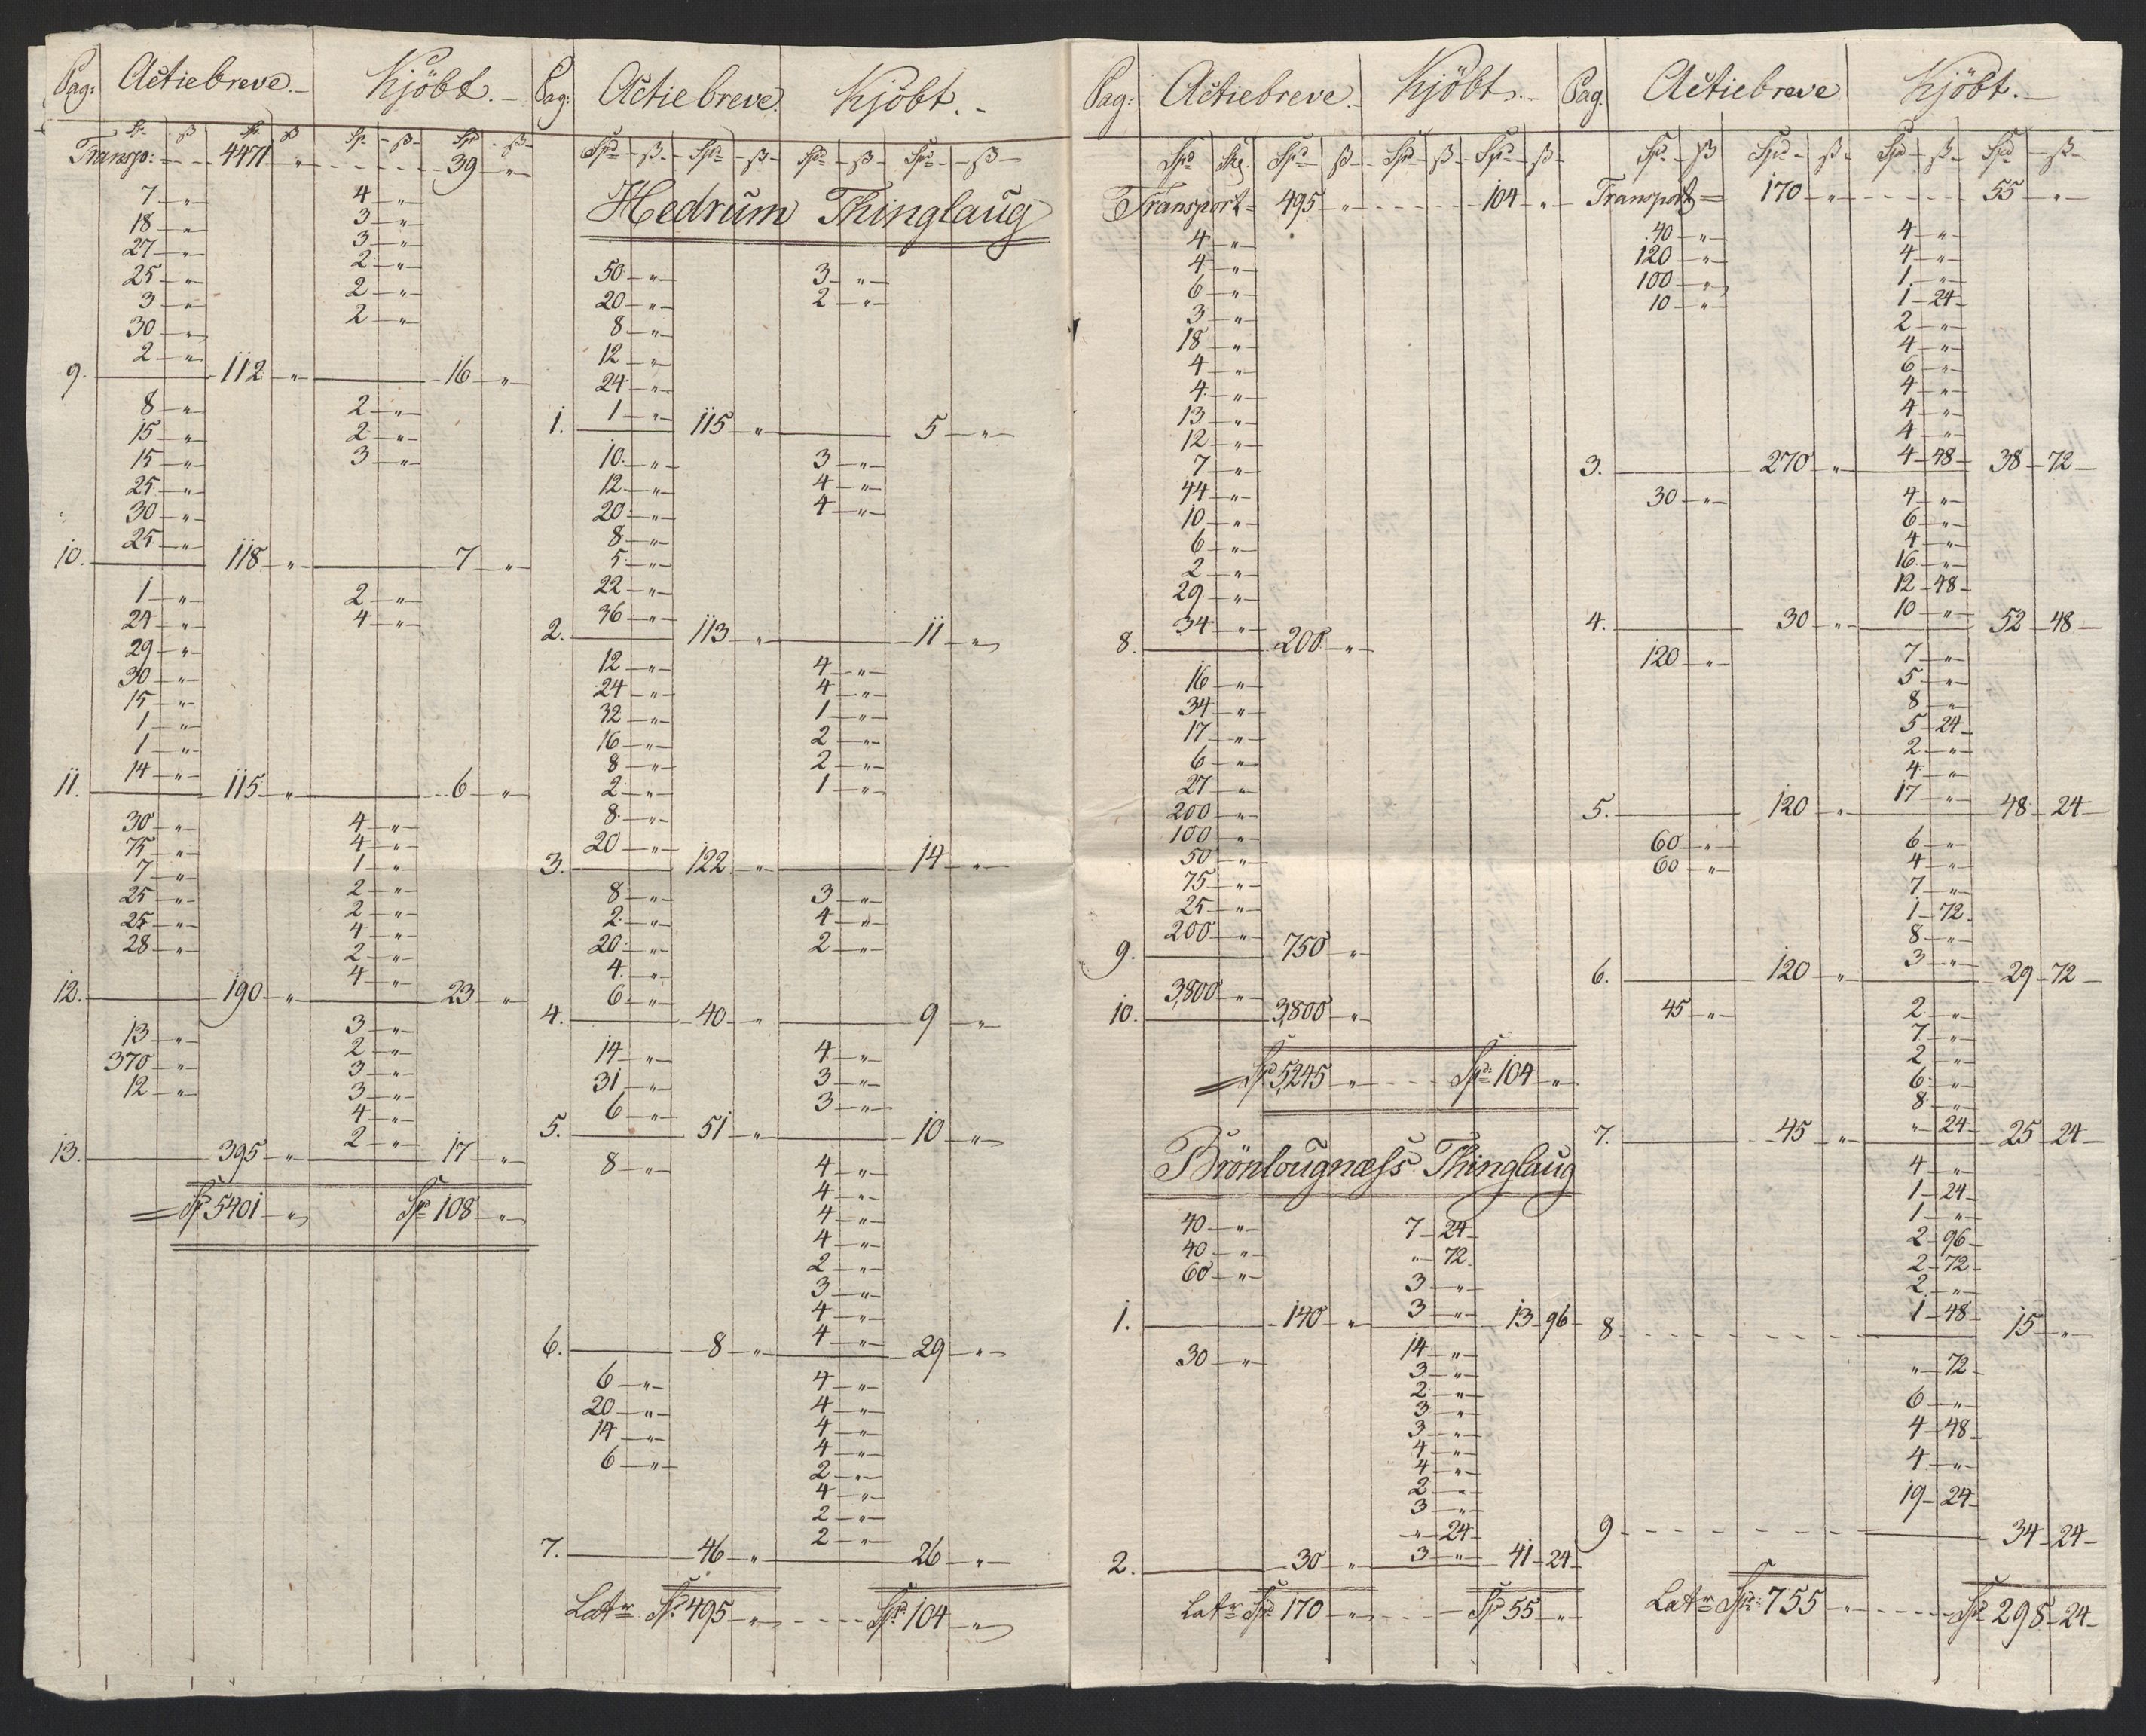 Pag: Actiebreve. Kjöbt.
Sp. ß Sp. ß Sp. ß Spd ß
Transp: 4471 „ 39 „
7 „ 4 „
18 „ 3 „
27 „ 3 „
25 „ 2 „
3 „ 2 „
30 „ 2 „
2 „
9. 112 „ 16 „
8 „ 2 „
15 „ 2 „
15 „ 3 „
25 „
30 „
25 „
10. 118 „ 7 „
1 „ 2 „
24 „ 4 „
29 „
30 „
15 „
1 „
1 „
14 „
11. 115 „ 6 „
30 „ 4 „
75 „ 4 „
7 „ 1 „
25 „ 2 „
25 „ 2 „
28 „ 4 „
2 „
4 „
12. 190 „ 23 „
13 „ 3 „
370 „ 2 „
12 „ 3 „
3 „
4 „
2 „
13. 395 „ 17 „
Sp 5401 „ Sp 108 „
Pag: Actiebreve. Kjöbt.
Spd ß Spd ß Spd ß Spd ß
Hedrum Thinglaug
50 „ 3 „
20 „ 2 „
8 „
12 „
24 „
1 „
1. 115 „ 5 „
10 „ 3 „
12 „ 4 „
20 „ 4 „
8 „
5 „
22 „
36 „
2. 113 „ 11 „
12 „ 4 „
24 „ 4 „
32 „ 1 „
16 „ 2 „
8 „ 2 „
2 „ 1 „
8 „
20 „
3. 122 „ 14 „
8 „ 3 „
2 „ 4 „
20 „ 2 „
4 „
6 „
4. 40 „ 9 „
14 „ 4 „
31 „ 3 „
6 „ 3 „
5. 51 „ 10 „
8 „ 4 „
4 „
4 „
4 „
2 „
3 „
4 „
4 „
6. 8 „ 29 „
6 „ 4 „
20 „ 4 „
14 „ 4 „
6 „ 4 „
2 „
4 „
2 „
2 „
7. 46 „ 26 „
Latr Spd 495 „ Spd 104 „
Pag: Actiebreve. Kjöbt.
Spd Sk. Spd ß Spd ß Spd ß
Transport 495 „ 104 „
4 „
4 „
6 „
3 „
18 „
4 „
4 „
13 „
12 „
7 „
44 „
10 „
6 „
2 „
29 „
34 „
8. 200 „
16 „
34 „
17 „
6 „
27 „
200 „
100 „
50 „
75 „
25 „
200 „
9. 750 „
3,800 „
10. 3,800 „
Spd 5,245 „ Spd 104 „
Brönlougnæss Thinglaug
40 „ 7 24
40 „ „ 72
60 „ 3 „
3 „
1. 140 „ 13 96
30 „ 14 „
3 „
2 „
3 „
3 „
4 „
4 „
2 „
3 „
„ 24
3 „
2. 30 „ 41 24
Latr Spd 170 „ Spd 55 „
Pag. Actiebreve Kjöbt.
Spd ß Spd ß Spd ß Spd ß
Transport 170 „ 55 „
40 „ 4 „
120 „ 4 „
100 „ 1 „
10 „ 1 24
2 „
4 „
6 „
4 „
4 „
4 „
4 48
3. 270 „ 38 72
30 „ 4 „
6 „
4 „
16 „
12 48
10 „
4. 30 „ 52 48
120 „ 7 „
5 „
8 „
5 24
2 „
4 „
17 „
5. 120 „ 48 24
60 „ 6 „
60 „ 4 „
7 „
1 72
8 „
3 „
6. 120 „ 29 72
45 „ 2 „
7 „
2 „
6 „
8 „
„ 24
7. 45 „ 25 24
4 „
1 24
1 „
2 96
2 72
2 „
1 48
8 15 „
„ 72
6 „
4 48
4 „
19 24
9 34 24
Latr Spd 755 „ Spd 298 24